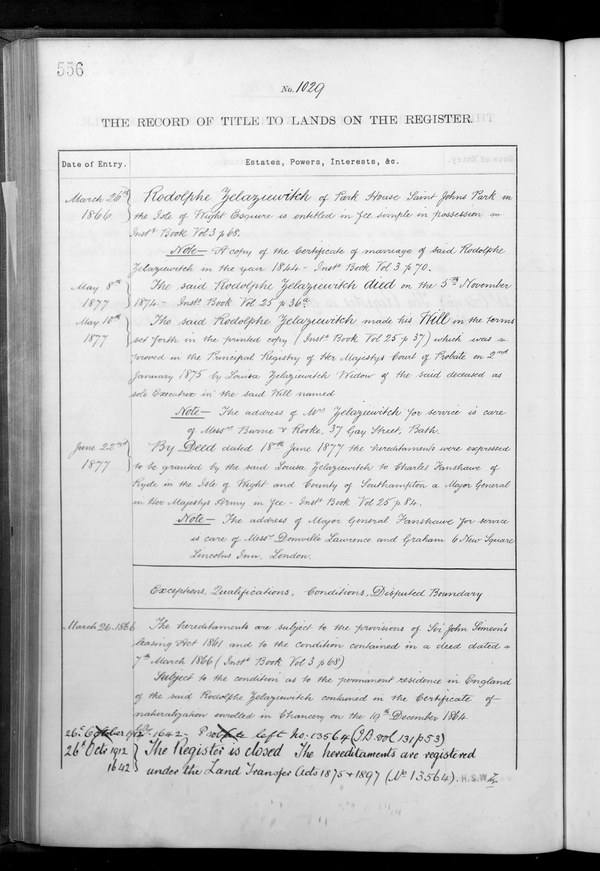 556
No. 1029
THE RECORD OF TITLE TO LANDS ON THE REGISTER.
Date of Entry.
Estates, Powers, Interests, &c.
March 26th 1866
Rodolphe Zelaziewitch of Park House Saint Johns Park in
the Isle of Wight Esquire is entitled in fee simple in possession
Instt Book Vol 3 p 68.
Note— A copy of the Certificate of marriage of said Rodolphe
Zelaziewitch in the year 1844 - Instt Book Vol 3 p 70.
May 8th 1877
The said Rodolphe Zelaziewitch died on the 5th November
1874 - Instt Book Vol 25 p 36a
May 10th 1877
The said Rodolphe Zelaziewitch made his Will in the terms
set forth in the printed copy (Instt Book Vol 25 p 37) which was
proved in the Principal Registry of Her Majestys Court of Probate on 2nd
January 1875 by Louisa Zelaziewitch Widow of the said deceased as
sole Executrix in the said Will named
Note— The address of Mrs Zelaziewitch for service is care
of Messrs Burne & Rooke, 37 Gay Street, Bath.
June 22nd 1877
By Deed dated 18th June 1877 the hereditaments were expressed
to be granted by the said Louisa Zelaziewitch to Charles Fanshawe of
Ryde in the Isle of Wight and County of Southampton a Major General
in Her Majestys Army in fee - Instt Book Vol 25 p 84.
Note— The address of Major General Fanshawe for service
is care of Messrs Domville Lawrence and Graham 6 New Square
Lincolns Inn, London.
Exceptions, Qualifications, Conditions, Disputed Boundary
March 26. 1866
The hereditaments are subject to the provisions of Sir John Simeon's
leasing Act 1861 and to the condition contained in a deed dated
7th March 1866 (Instt Book Vol 3 p 68)
Subject to the condition as to the permanent residence in England
of the said Rodolphe Zelaziewitch contained in the Certificate of
naturalization enrolled in Chancery on the 19th December 1864.
26th October 1912 1642- left No. 13564 (I.B. vol 131 p 53)
26th Octr 1912
1642
The Register is closed The hereditaments are registered
under the Land Transfer Acts 1875 & 1897 (No 13564). H.S.W.